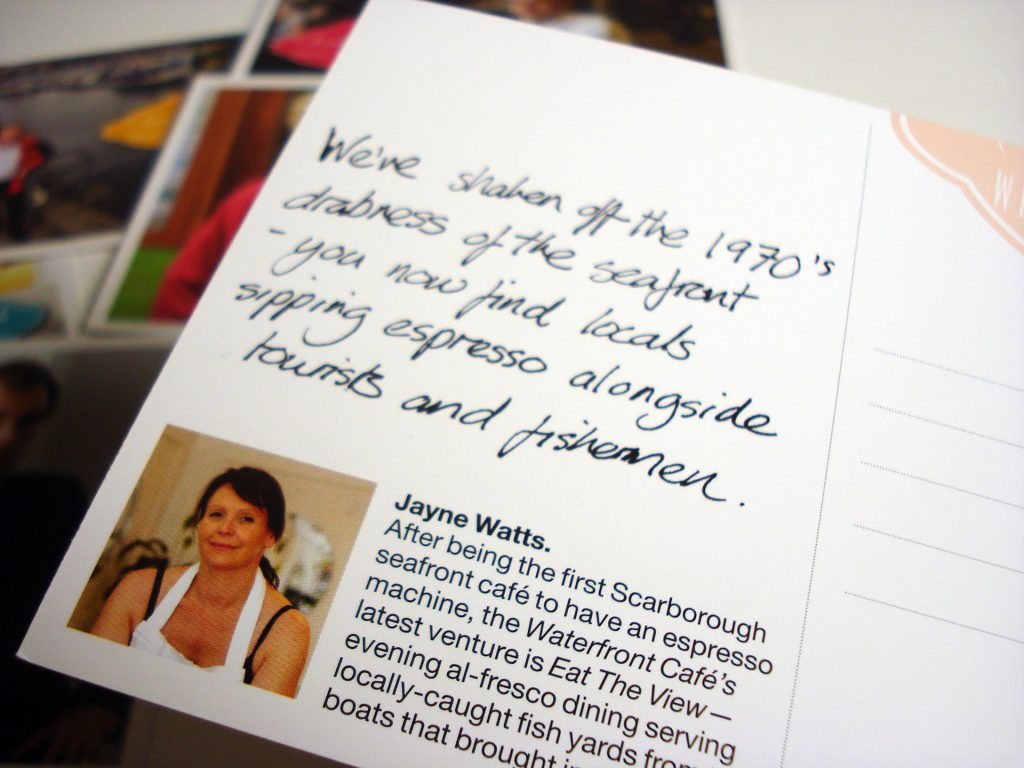 We're shaken off the 1970's
drabness of the seafront
- you now find locals
sipping espresso alongside
tourists and fishermen.
Jayne Watts.
After being the first Scarborough
seafront café to have an espresso
machine, the Waterfront Café's
latest venture is Eat The View—
evening al-fresco dining serving
locally-caught fish yards from
boats that brought